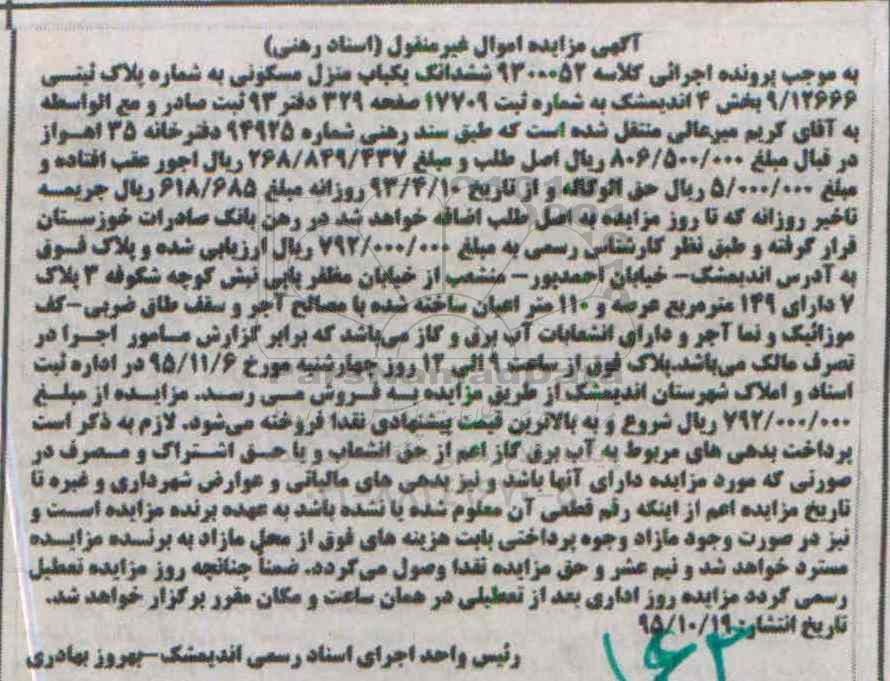 آگهی مزایده اموال غیرمنقول (اسناد رهنی)
به موجب پرونده اجرائی کلاسه ۹۳۰۰۰۵۲ ششدانگ یکباب منزل مسکونی به شماره پلاک ثبتی
۹/۱۲۶۶۶ بخش ۴ اندیمشک به شماره ثبت ۱۷۷۰۹ صفحه ۳۲۹ دفتر ۹۳ ثبت صادر و مع الواسطه
به آقای کریم میرعالی منتقل شده است که طبق سند رهنی شماره ۹۴۹۲۵ دفترخانه ۳۵ اهواز
در قبال مبلغ ۸۰۶/۵۰۰/۰۰۰ ریال اصل طلب و مبلغ ۲۶۸/۸۴۹/۴۳۷ ریال اجور عقب افتاده و
مبلغ ۵/۰۰۰/۰۰۰ ریال حق الوکاله و از تاریخ ۹۳/۴/۱۰ روزانه مبلغ ۶۱۸/۶۸۵ ریال جریمه
تاخیر روزانه که تا روز مزایده به اصل طلب اضافه خواهد شد در رهن بانک صادرات خوزستان
قرار گرفته و طبق نظر کارشناس رسمی به مبلغ ۷۹۲/۰۰۰/۰۰۰ ریال ارزیابی شده و پلاک فوق
به آدرس اندیمشک- خیابان احمدپور- منشعب از خیابان مظفر پاپی نبش کوچه شکوفه ۳ پلاک
۷ دارای ۱۴۹ مترمربع عرصه و ۱۱۰ متر اعیان ساخته شده با مصالح آجر و سقف طاق ضربی-کف
موزائیک و نما آجر و دارای انشعابات آب برق و گاز می‌باشد که برابر گزارش مامور اجرا در
تصرف مالک می‌باشد.پلاک فوق از ساعت ۹ الی ۱۲ روز چهارشنبه مورخ ۹۵/۱۱/۶ در اداره ثبت
اسناد و املاک شهرستان اندیمشک از طریق مزایده به فروش می رسد. مزایده از مبلغ
۷۹۲/۰۰۰/۰۰۰ ریال شروع و به بالاترین قیمت پیشنهادی نقدا فروخته می‌شود. لازم به ذکر است
پرداخت بدهی های مربوط به آب برق گاز اعم از حق انشعاب و یا حق اشتراک و مصرف در
صورتی که مورد مزایده دارای آنها باشد و نیز بدهی های مالیاتی و عوارض شهرداری و غیره تا
تاریخ مزایده اعم از اینکه رقم قطعی آن معلوم شده یا نشده باشد به عهده برنده مزایده است و
نیز در صورت وجود مازاد وجوه پرداختی بابت هزینه های فوق از محل مازاد به برنده مزایده
مسترد خواهد شد و نیم عشر و حق مزایده نقدا وصول می‌گردد. ضمناً چنانچه روز مزایده تعطیل
رسمی گردد مزایده روز اداری بعد از تعطیلی در همان ساعت و مکان مقرر برگزار خواهد شد.
تاریخ انتشار: ۹۵/۱۰/۱۹
رئیس واحد اجرای اسناد رسمی اندیمشک-بهروز بهادری